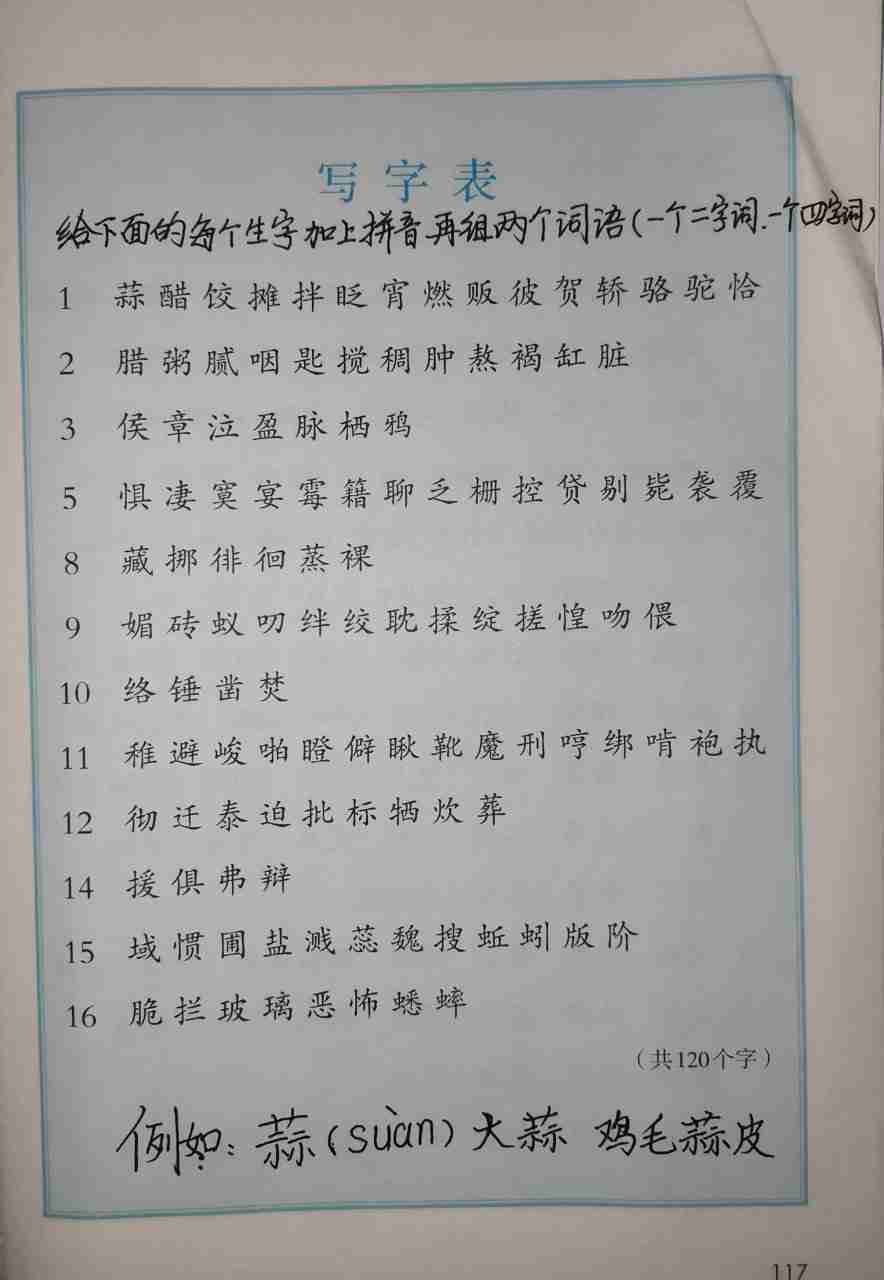 写字表
给下面的每个生字加上拼音再组两个词语(一个二字词.一个四字词)
1 蒜醋饺摊拌眨宵燃贩彼贺轿骆驼恰
2 腊粥腻咽匙搅稠肿熬褐缸脏
3 侯章泣盈脉栖鸦
5 惧凄寞宴霉籍聊乏栅控贷剔毙袭覆
8 藏挪徘徊蒸裸
9 媚砖蚁叨绊绞耽揉绽搓惶吻偎
10 络锤凿焚
11 稚避峻啪瞪僻瞅靴魔刑哼绑啃袍执
12 彻迁泰迫批标牺炊葬
14 援俱弗辩
15 域惯圃盐溅蕊魏搜蚯蚓版阶
16 脆拦玻璃恶怖蟋蟀
(共120个字)
例如:蒜(suàn)大蒜 鸡毛蒜皮
117